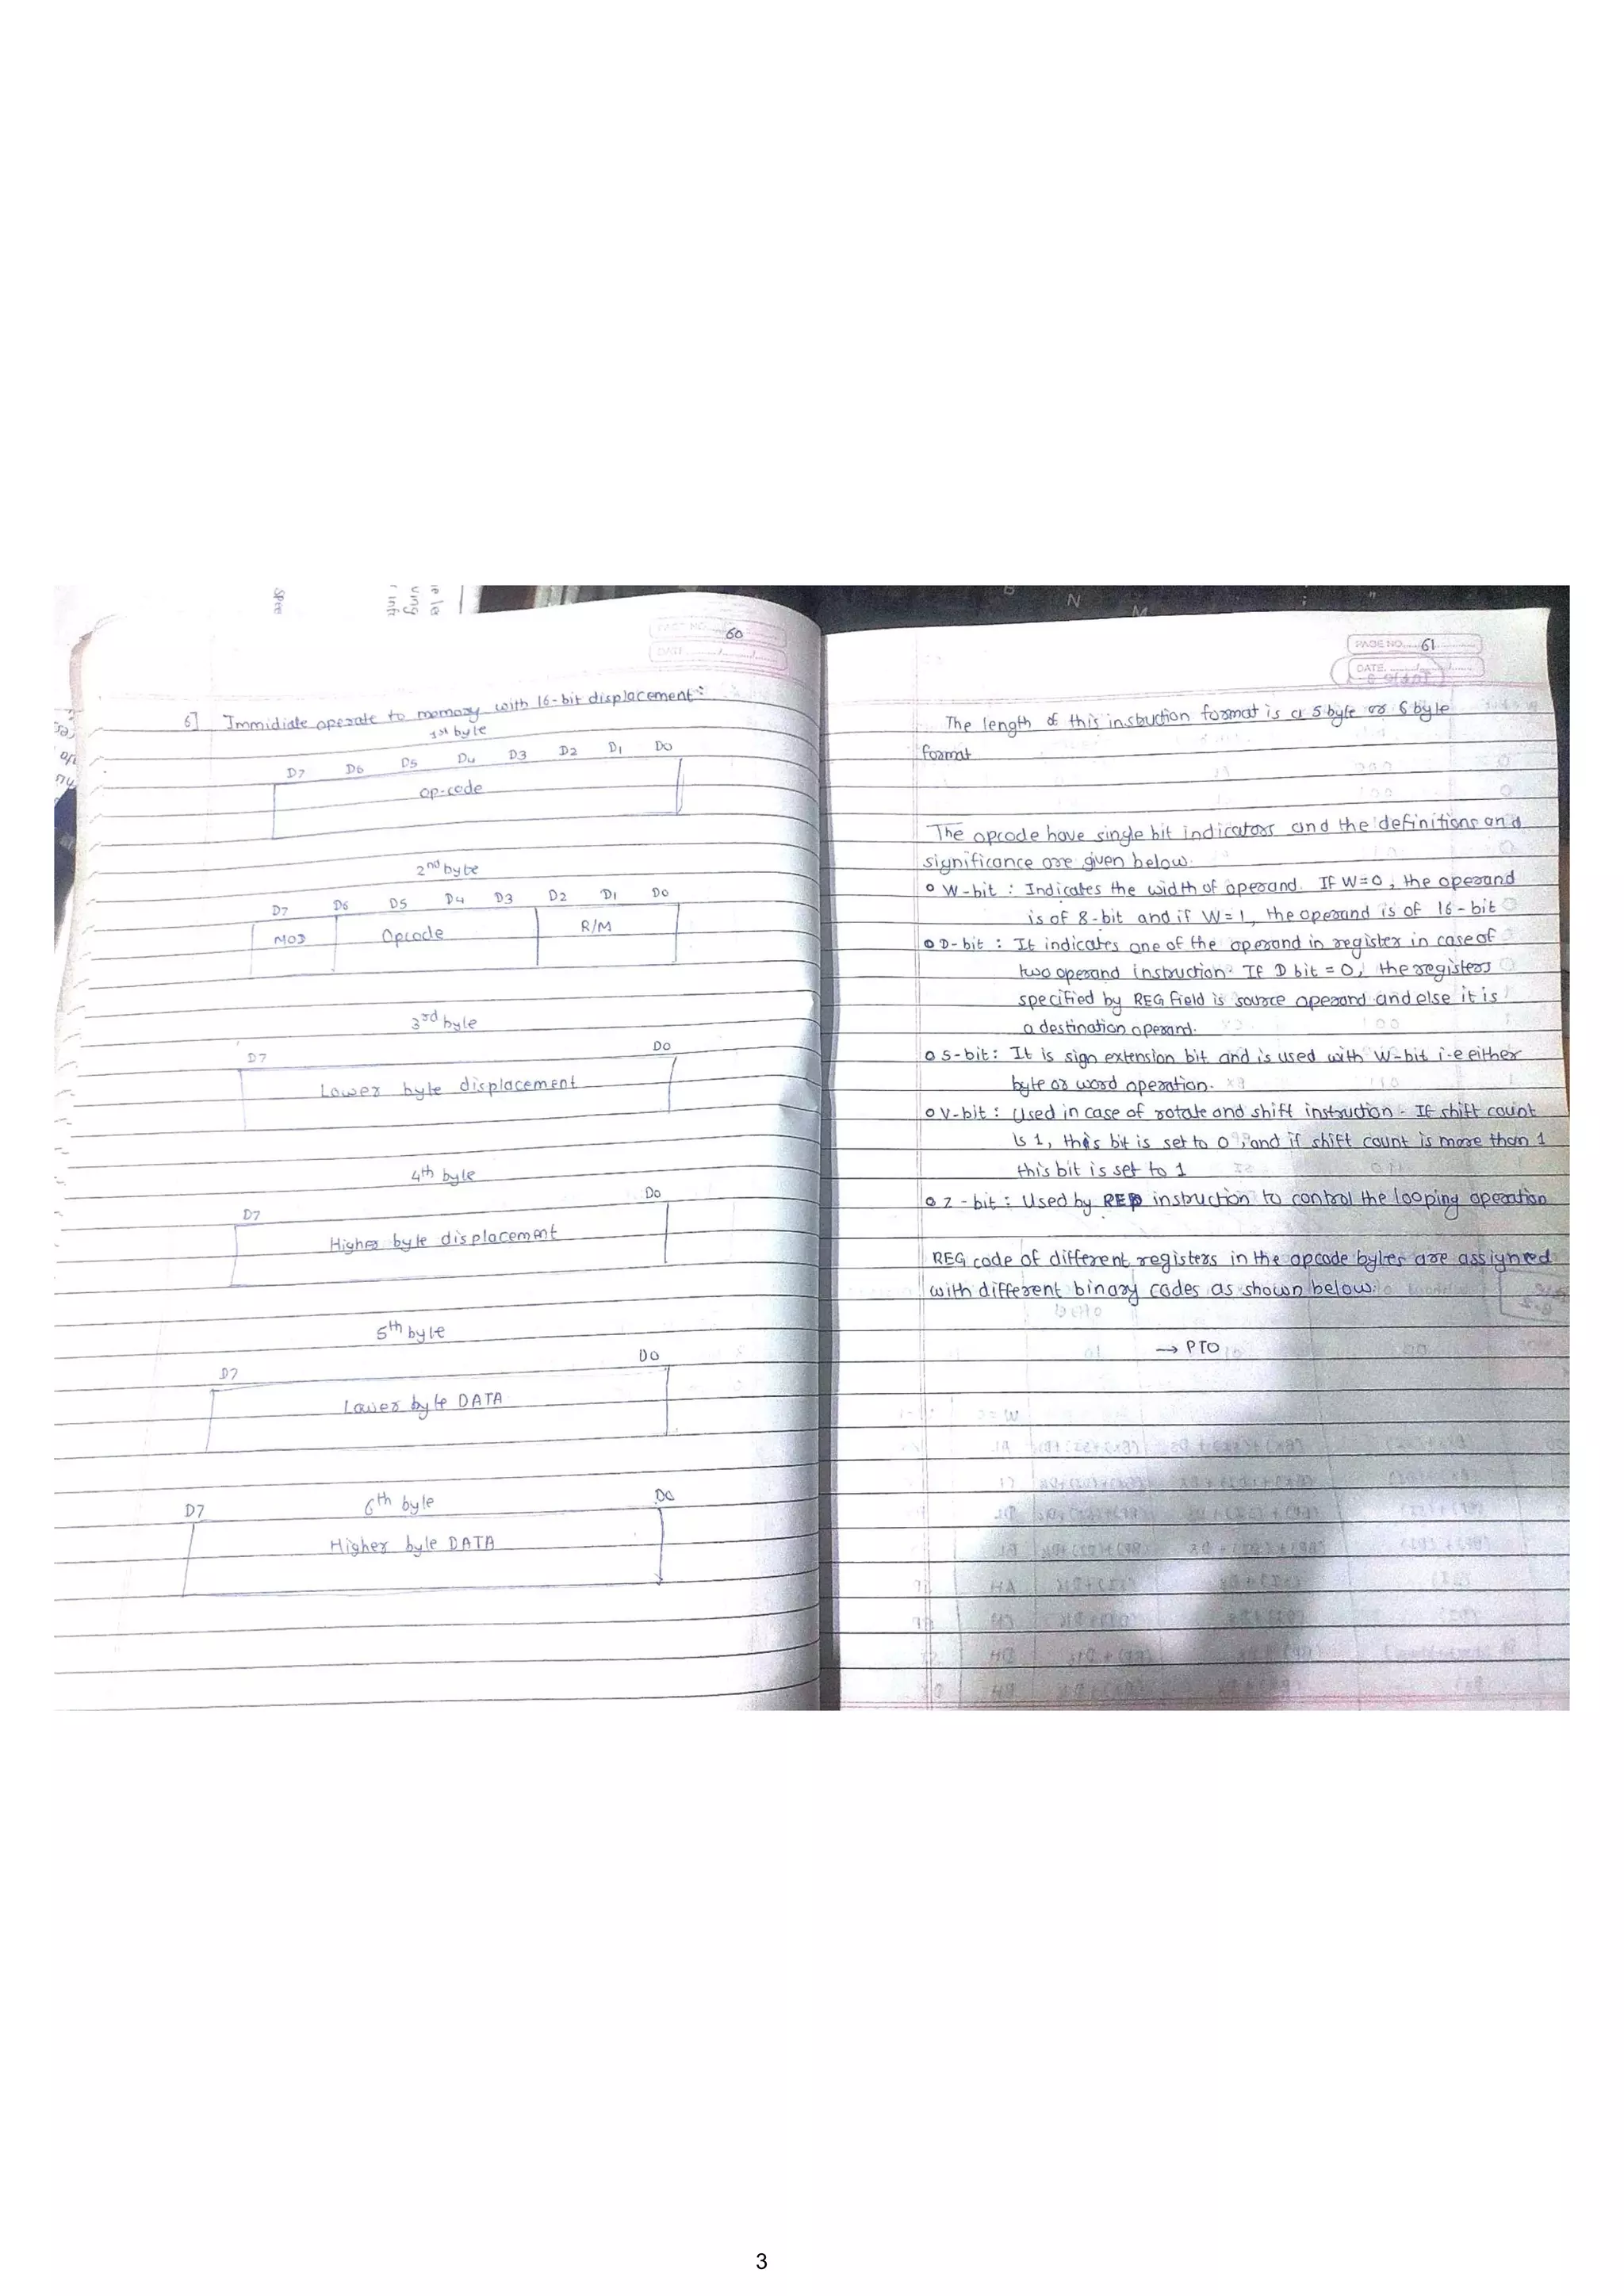 PAGE NO. 60
DATE / /
6] Immidiate operate to memory with 16-bit displacement:
1st byte
D7 D6 D5 D4 D3 D2 D1 D0
op-code
2nd byte
D7 D6 D5 D4 D3 D2 D1 D0
MOD Opcode R/M
3rd byte
D7 D0
Lower byte displacement
4th byte
D7 D0
Higher byte displacement
5th byte
D7 D0
Lower byte DATA
6th byte
D7 D0
Higher byte DATA
PAGE NO. 61
DATE. / /
The length of this instruction format is a 5 byte or 6 byte
format
The opcode have single bit indicators and the definitions and
significance are given below.
o W-bit : Indicates the width of operand. If W=0, the operand
is of 8-bit and if W=1, the operand is of 16-bit
o D-bit : It indicates one of the operand in register in case of
two operand instruction. If D bit = 0, the registers
specified by REG field is source operand and else it is
a destination operand.
o S-bit: It is sign extension bit and is used with W-bit i.e either
byte or word operation.
o V-bit : Used in case of rotate and shift instruction. If shift count
is 1, this bit is set to 0, and if shift count is more than 1
this bit is set to 1
o Z-bit : Used by REP instruction to control the looping operation
REG code of different registers in the opcode bytes are assigned
with different binary codes as shown below:
→ PTO
3